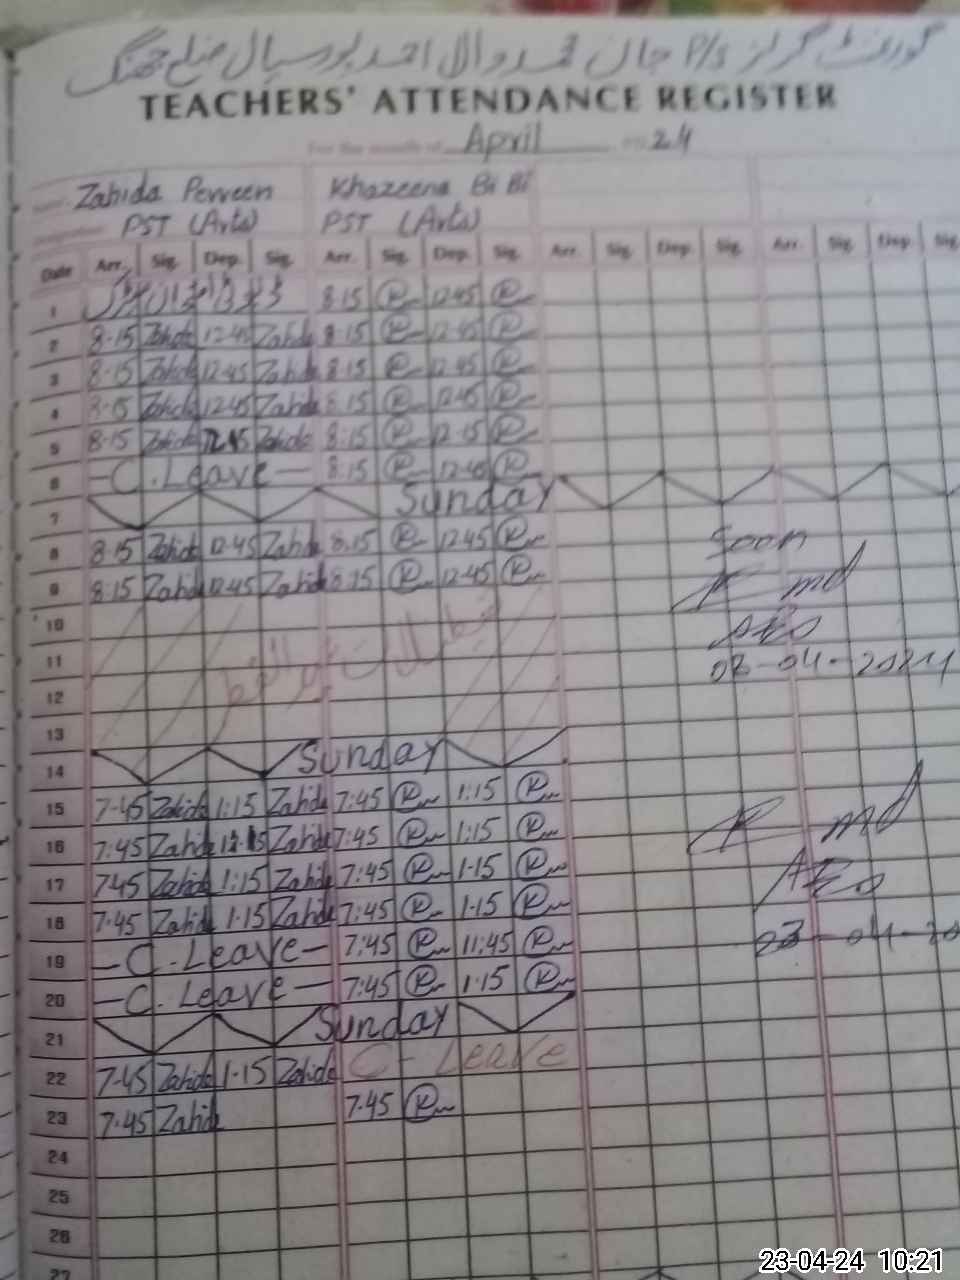 گورنمنٹ گرلز P/S جال محمد والا احمد پور سیال ضلع جھنگ
TEACHERS' ATTENDANCE REGISTER
For the month of April 24
Zahida Perveen Khazeena Bi Bi
PST (Arts) PST (Arts)
Date Arr. Sig. Dep. Sig. Arr. Sig. Dep. Sig. Arr. Sig. Dep. Sig. Arr. Sig. Dep. Sig.
1 8:15 R 12:45 R
2 8:15 Zahida 12:45 Zahida 8:15 R 12:45 R
3 8:15 Zahida 12:45 Zahida 8:15 R 12:45 R
4 8:15 Zahida 12:45 Zahida 8:15 R 12:45 R
5 8:15 Zahida 12:45 Zahida 8:15 R 12:15 R
6 -C. Leave- 8:15 R 12:40 R
7 Sunday
8 8:15 Zahida 12:45 Zahida 8:15 R 12:45 R Seen
9 8:15 Zahida 12:45 Zahida 8:15 R 12:45 R
10 AEO
11 03-04-2024
12
13
14 Sunday
15 7:45 Zahida 1:15 Zahida 7:45 R 1:15 R
16 7:45 Zahida Zahida 7:45 R 1:15 R
17 7:45 Zahida 1:15 Zahida 7:45 R 1:15 R AEO
18 7:45 Zahida 1:15 Zahida 7:45 R 1:15 R
19 -C. Leave- 7:45 R 11:45 R 03-04-20
20 -C. Leave- 7:45 R 1:15 R
21 Sunday
22 7:45 Zahida 1:15 Zahida C- Leave
23 7:45 Zahida 7:45 R
24
25
26
27
23-04-24 10:21